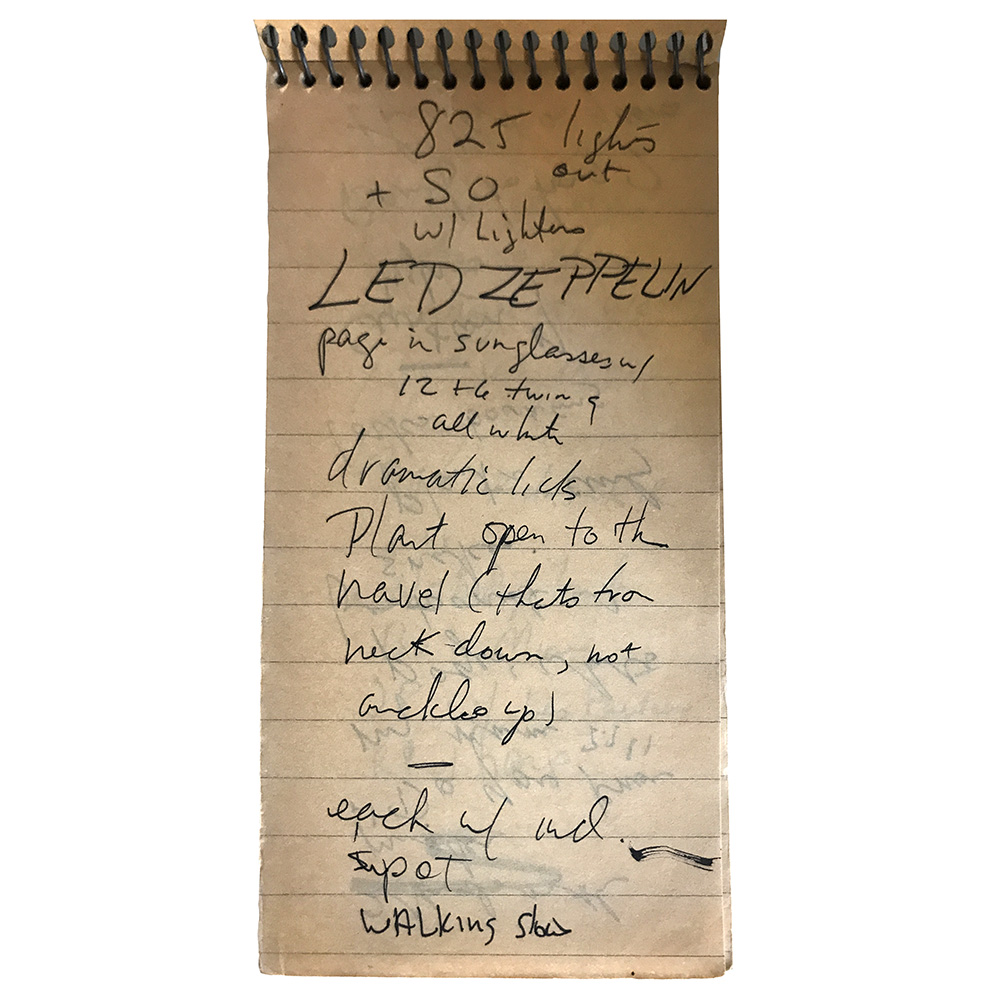 825 lights
out
+ SO
w/ Lighters
LED ZEPPELIN
page in sunglasses w/
12 + 6 twin g
all white
dramatic licks
Plant open to th
navel (thats from
neck down, not
anckles up)
—
each w/ ind.
spot
WALKing slow